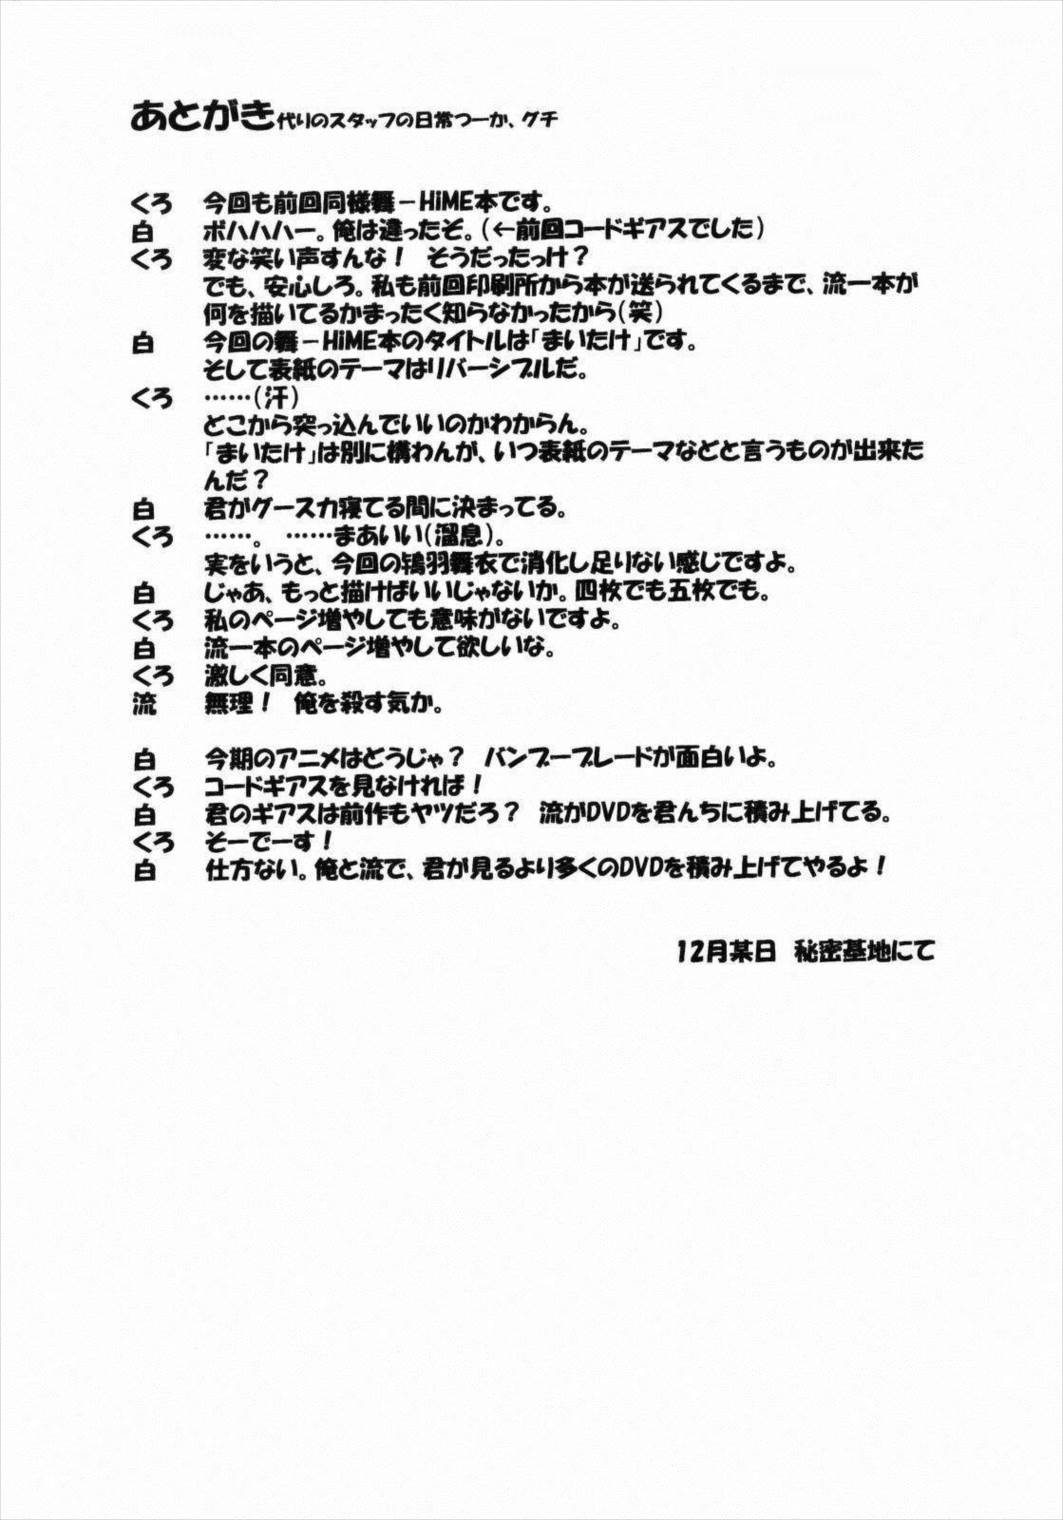 あとがき代りのスタッフの日常つーか、グチ
くろ 今回も前回同様舞－HiME本です。
白 ボハハハー。俺は違ったぞ。(←前回コードギアスでした)
くろ 変な笑い声すんな！ そうだったっけ？
でも、安心しろ。私も前回印刷所から本が送られてくるまで、流一本が
何を描いてるかまったく知らなかったから(笑)
白 今回の舞－HiME本のタイトルは「まいたけ」です。
そして表紙のテーマはリバーシブルだ。
くろ ……(汗)
どこから突っ込んでいいのかわからん。
「まいたけ」は別に構わんが、いつ表紙のテーマなどと言うものが出来た
んだ？
白 君がグースカ寝てる間に決まってる。
くろ ……。 ……まあいい(溜息)。
実をいうと、今回の鴇羽舞衣で消化し足りない感じですよ。
白 じゃあ、もっと描けばいいじゃないか。四枚でも五枚でも。
くろ 私のページ増やしても意味がないですよ。
白 流一本のページ増やして欲しいな。
くろ 激しく同意。
流 無理！ 俺を殺す気か。
白 今期のアニメはどうじゃ？ バンブーブレードが面白いよ。
くろ コードギアスを見なければ！
白 君のギアスは前作もヤツだろ？ 流がDVDを君んちに積み上げてる。
くろ そーでーす！
白 仕方ない。俺と流で、君が見るより多くのDVDを積み上げてやるよ！
12月某日 秘密基地にて